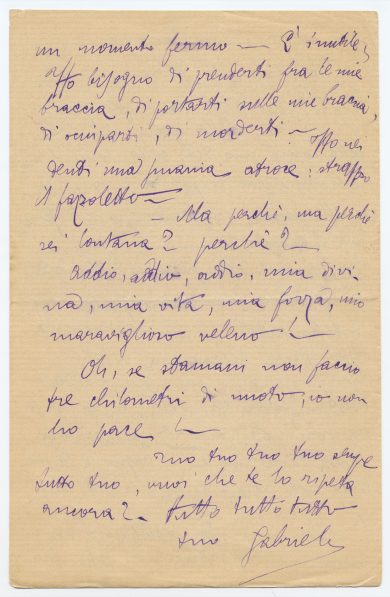 un momento fermo — È inutile;
Ho bisogno di prenderti fra le mie
braccia, di portarti sulle mie braccia,
di occuparti, di morderti — Ho nei
denti una smania atroce: strappo
il fazzoletto —
— Ma perché, ma perché
sei lontana? perché? —
addio, addio, addio, mia divi-
na, mia vita, mia forza, mio
maraviglioso veleno! —
Oh, se stamani non faccio
tre chilometri di nuoto, io non
ho pace! —
tuo tuo tuo tuo sempre
tutto tuo, vuoi che te lo ripeta
ancora? — tutto tutto tutto
tuo Gabriele